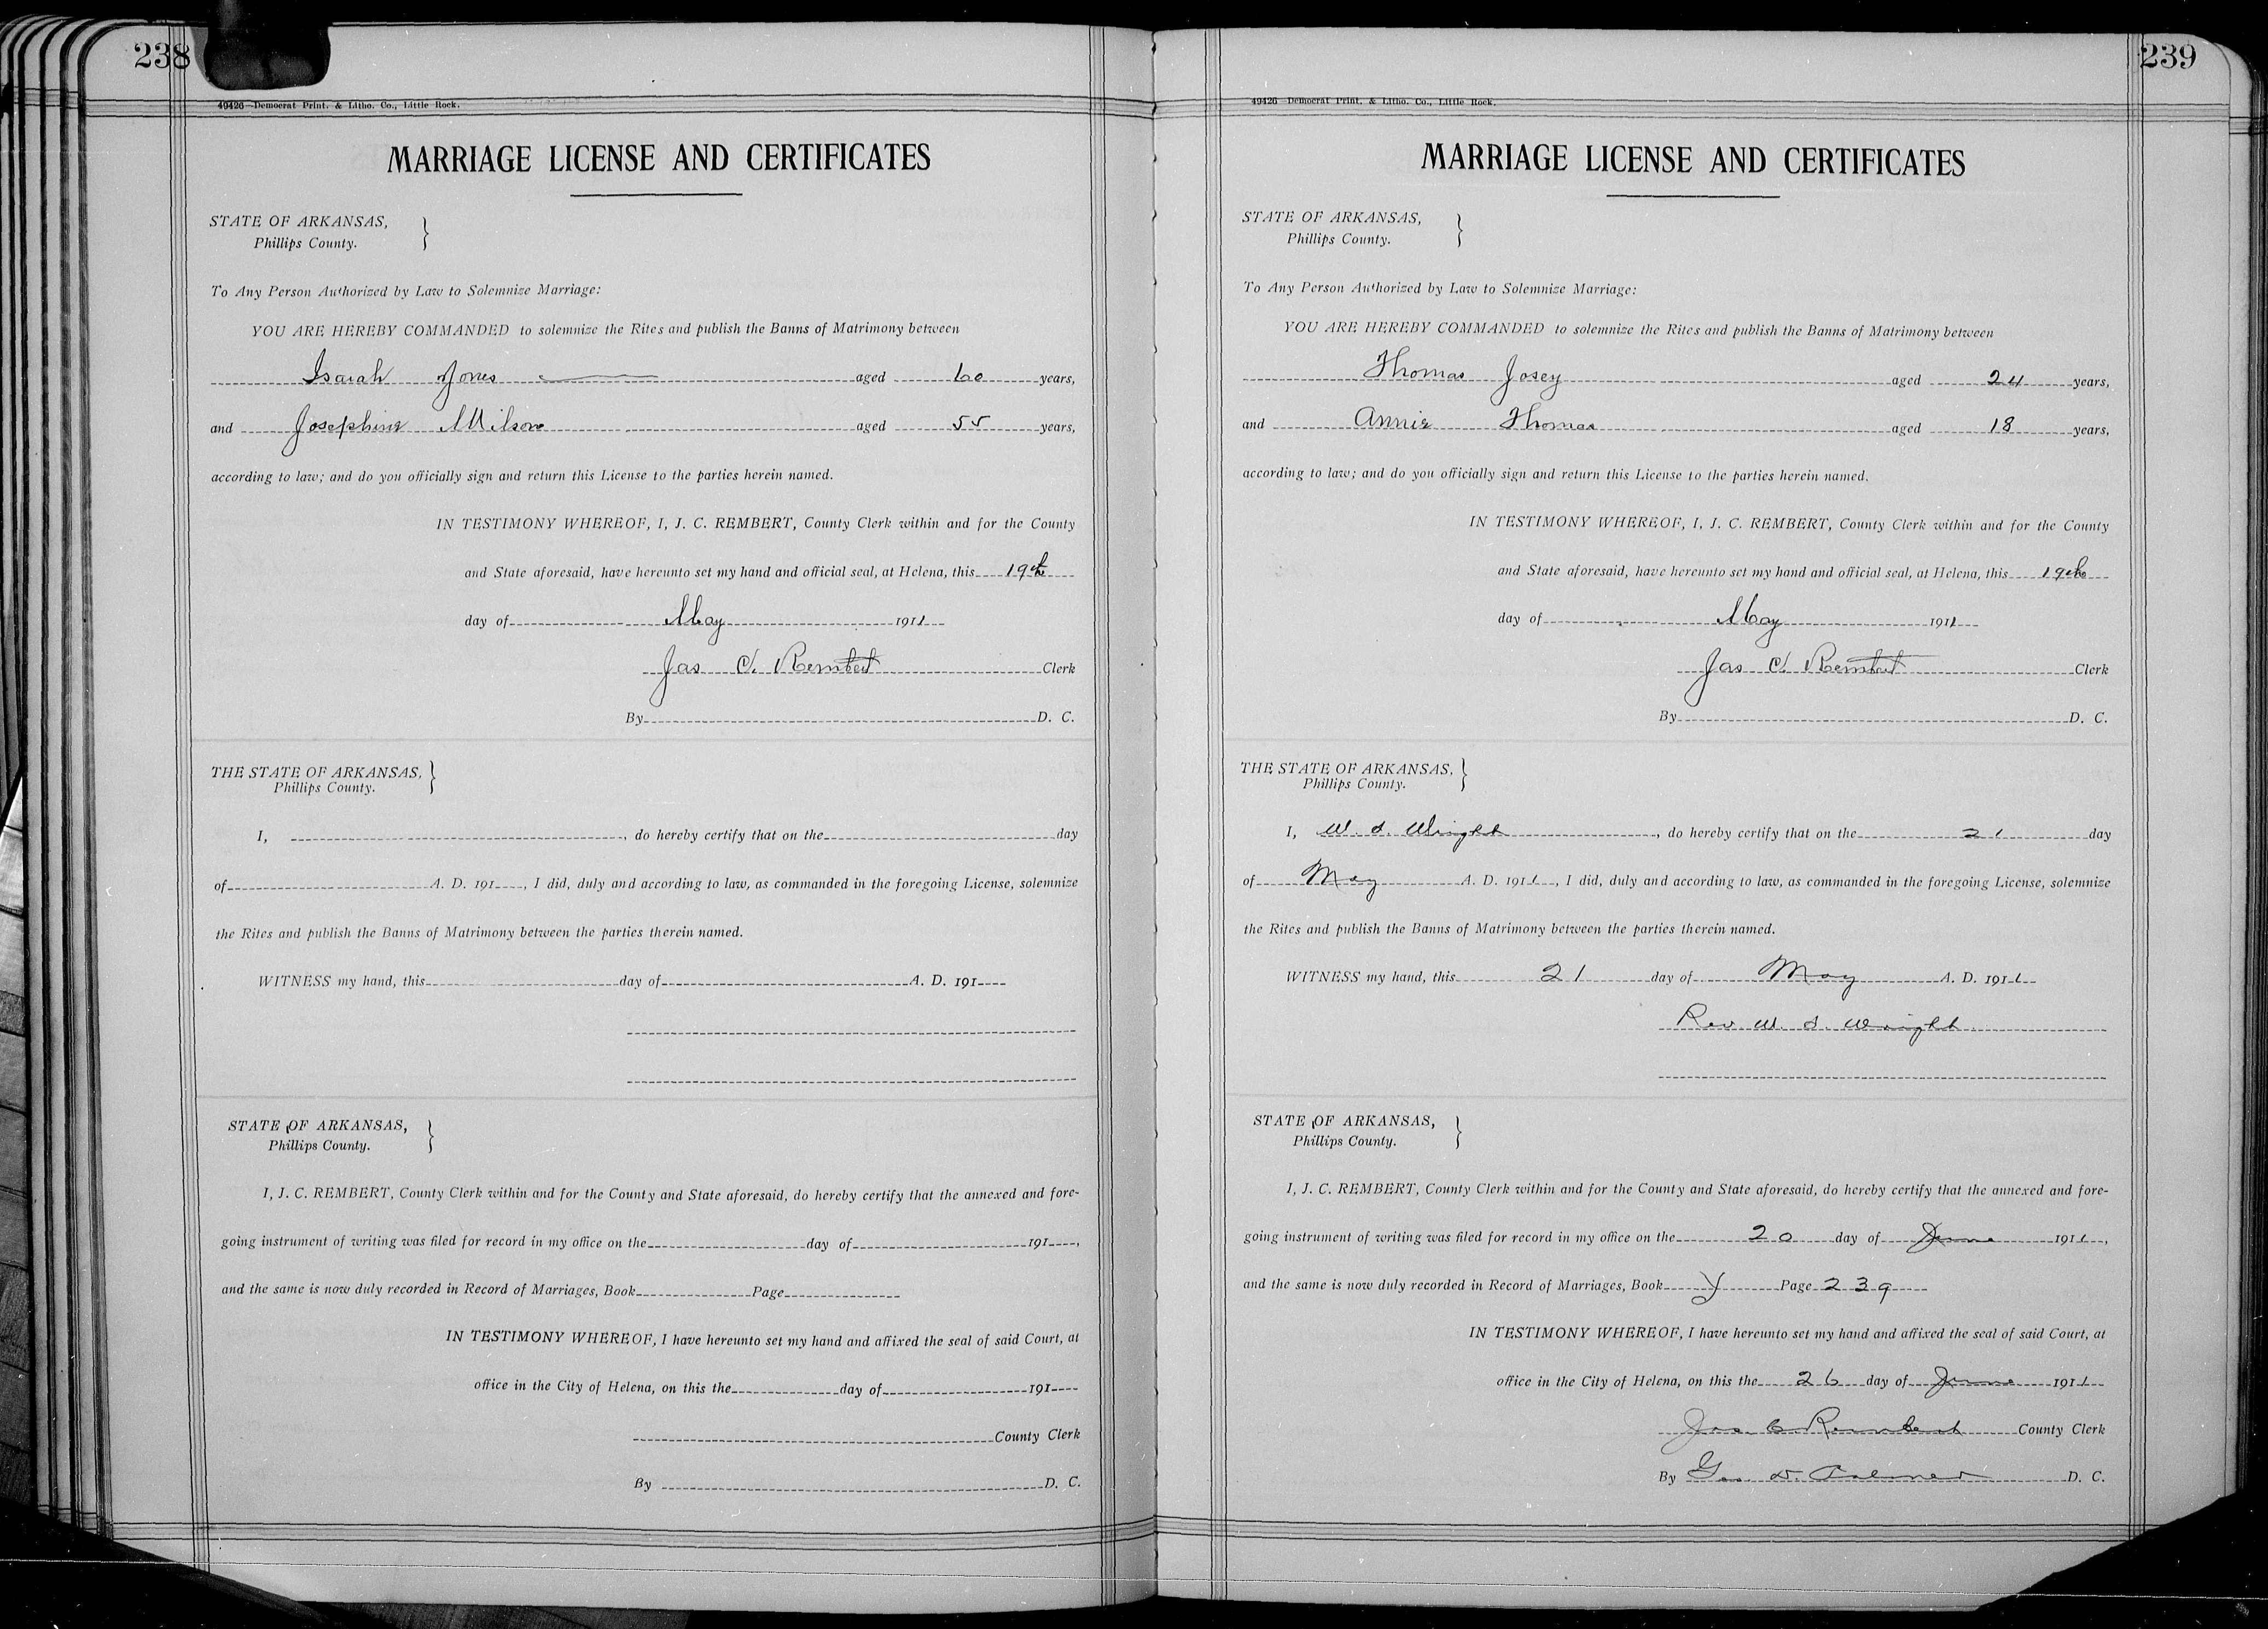 238
49426—Democrat Print. & Litho. Co., Little Rock.
MARRIAGE LICENSE AND CERTIFICATES
STATE OF ARKANSAS,
Phillips County.
To Any Person Authorized by Law to Solemnize Marriage:
YOU ARE HEREBY COMMANDED to solemnize the Rites and publish the Banns of Matrimony between
Isaiah Jones aged 60 years,
and Josephine Wilson aged 55 years,
according to law; and do you officially sign and return this License to the parties herein named.
IN TESTIMONY WHEREOF, I, J. C. REMBERT, County Clerk within and for the County
and State aforesaid, have hereunto set my hand and official seal, at Helena, this 19th
day of May 1911
Jas C. Rembert Clerk
By D. C.
THE STATE OF ARKANSAS,
Phillips County.
I, , do hereby certify that on the day
of A. D. 191 , I did, duly and according to law, as commanded in the foregoing License, solemnize
the Rites and publish the Banns of Matrimony between the parties therein named.
WITNESS my hand, this day of A. D. 191
STATE OF ARKANSAS,
Phillips County.
I, J. C. REMBERT, County Clerk within and for the County and State aforesaid, do hereby certify that the annexed and fore-
going instrument of writing was filed for record in my office on the day of 191 ,
and the same is now duly recorded in Record of Marriages, Book Page
IN TESTIMONY WHEREOF, I have hereunto set my hand and affixed the seal of said Court, at
office in the City of Helena, on this the day of 191
County Clerk
By D. C.
239
49426—Democrat Print. & Litho. Co., Little Rock.
MARRIAGE LICENSE AND CERTIFICATES
STATE OF ARKANSAS,
Phillips County.
To Any Person Authorized by Law to Solemnize Marriage:
YOU ARE HEREBY COMMANDED to solemnize the Rites and publish the Banns of Matrimony between
Thomas Josey aged 24 years,
and Annie Thomas aged 18 years,
according to law; and do you officially sign and return this License to the parties herein named.
IN TESTIMONY WHEREOF, I, J. C. REMBERT, County Clerk within and for the County
and State aforesaid, have hereunto set my hand and official seal, at Helena, this 19th
day of May 1911
Jas C. Rembert Clerk
By D. C.
THE STATE OF ARKANSAS,
Phillips County.
I, W. Wright, do hereby certify that on the 21 day
of May A. D. 1911, I did, duly and according to law, as commanded in the foregoing License, solemnize
the Rites and publish the Banns of Matrimony between the parties therein named.
WITNESS my hand, this 21 day of May A. D. 1911
Rev W. Wright
STATE OF ARKANSAS,
Phillips County.
I, J. C. REMBERT, County Clerk within and for the County and State aforesaid, do hereby certify that the annexed and fore-
going instrument of writing was filed for record in my office on the 20 day of June 1911,
and the same is now duly recorded in Record of Marriages, Book Y Page 239
IN TESTIMONY WHEREOF, I have hereunto set my hand and affixed the seal of said Court, at
office in the City of Helena, on this the 26 day of June 1911
Jas C Rembert County Clerk
By Geo D. D. C.